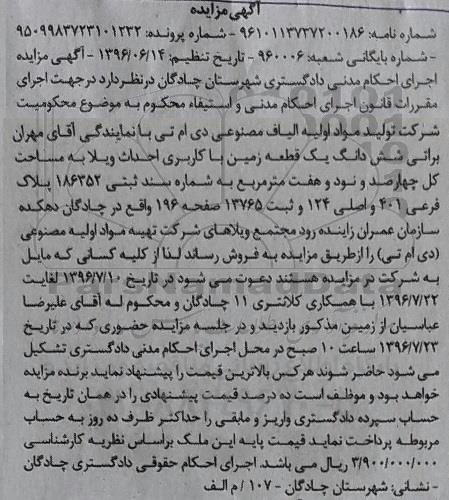 آگهی مزایده
شماره نامه: ۹۶۱۰۱۱۳۷۳۷۲۰۰۱۸۶ - شماره پرونده: ۹۵۰۹۹۸۳۷۲۳۱۰۱۲۳۲
- شماره بایگانی شعبه: ۹۶۰۰۰۶ - تاریخ تنظیم: ۱۳۹۶/۰۶/۱۴ - آگهی مزایده
اجرای احکام مدنی دادگستری شهرستان چادگان درنظر دارد درجهت اجرای
مقررات قانون اجرای احکام مدنی و استیفاء محکوم به موضوع محکومیت
شرکت تولید مواد اولیه الیاف مصنوعی دی ام تی با نمایندگی آقای مهران
براتی شش دانگ یک قطعه زمین با کاربری احداث ویلا به مساحت
کل چهارصد و نود و هفت مترمربع به شماره سند ثبتی ۱۸۶۳۵۲ پلاک
فرعی ۴۰۱ و اصلی ۱۲۴ و ثبت ۱۳۷۶۵ صفحه ۱۹۶ واقع در چادگان دهکده
سازمان عمران زاینده رود مجتمع ویلاهای شرکت تهیه مواد اولیه مصنوعی
(دی ام تی) را ازطریق مزایده به فروش رساند لذا از کلیه کسانی که مایل
به شرکت در مزایده هستند دعوت می شود در تاریخ ۱۳۹۶/۷/۱۰ لغایت
۱۳۹۶/۷/۲۲ با همکاری کلانتری ۱۱ چادگان و محکوم له آقای علیرضا
عباسیان از زمین مذکور بازدید و در جلسه مزایده حضوری که در تاریخ
۱۳۹۶/۷/۲۳ ساعت ۱۰ صبح در محل اجرای احکام مدنی دادگستری تشکیل
می شود حاضر شوند هرکس بالاترین قیمت را پیشنهاد نماید برنده مزایده
خواهد بود و موظف است ده درصد قیمت پیشنهادی را در همان تاریخ به
حساب سپرده دادگستری واریز و مابقی را حداکثر ظرف ده روز به حساب
مربوطه پرداخت نماید قیمت پایه این ملک براساس نظریه کارشناسی
۳/۹۰۰/۰۰۰/۰۰۰ ریال می باشد. اجرای احکام حقوقی دادگستری چادگان
- نشانی: شهرستان چادگان - ۱۰۷ / م الف